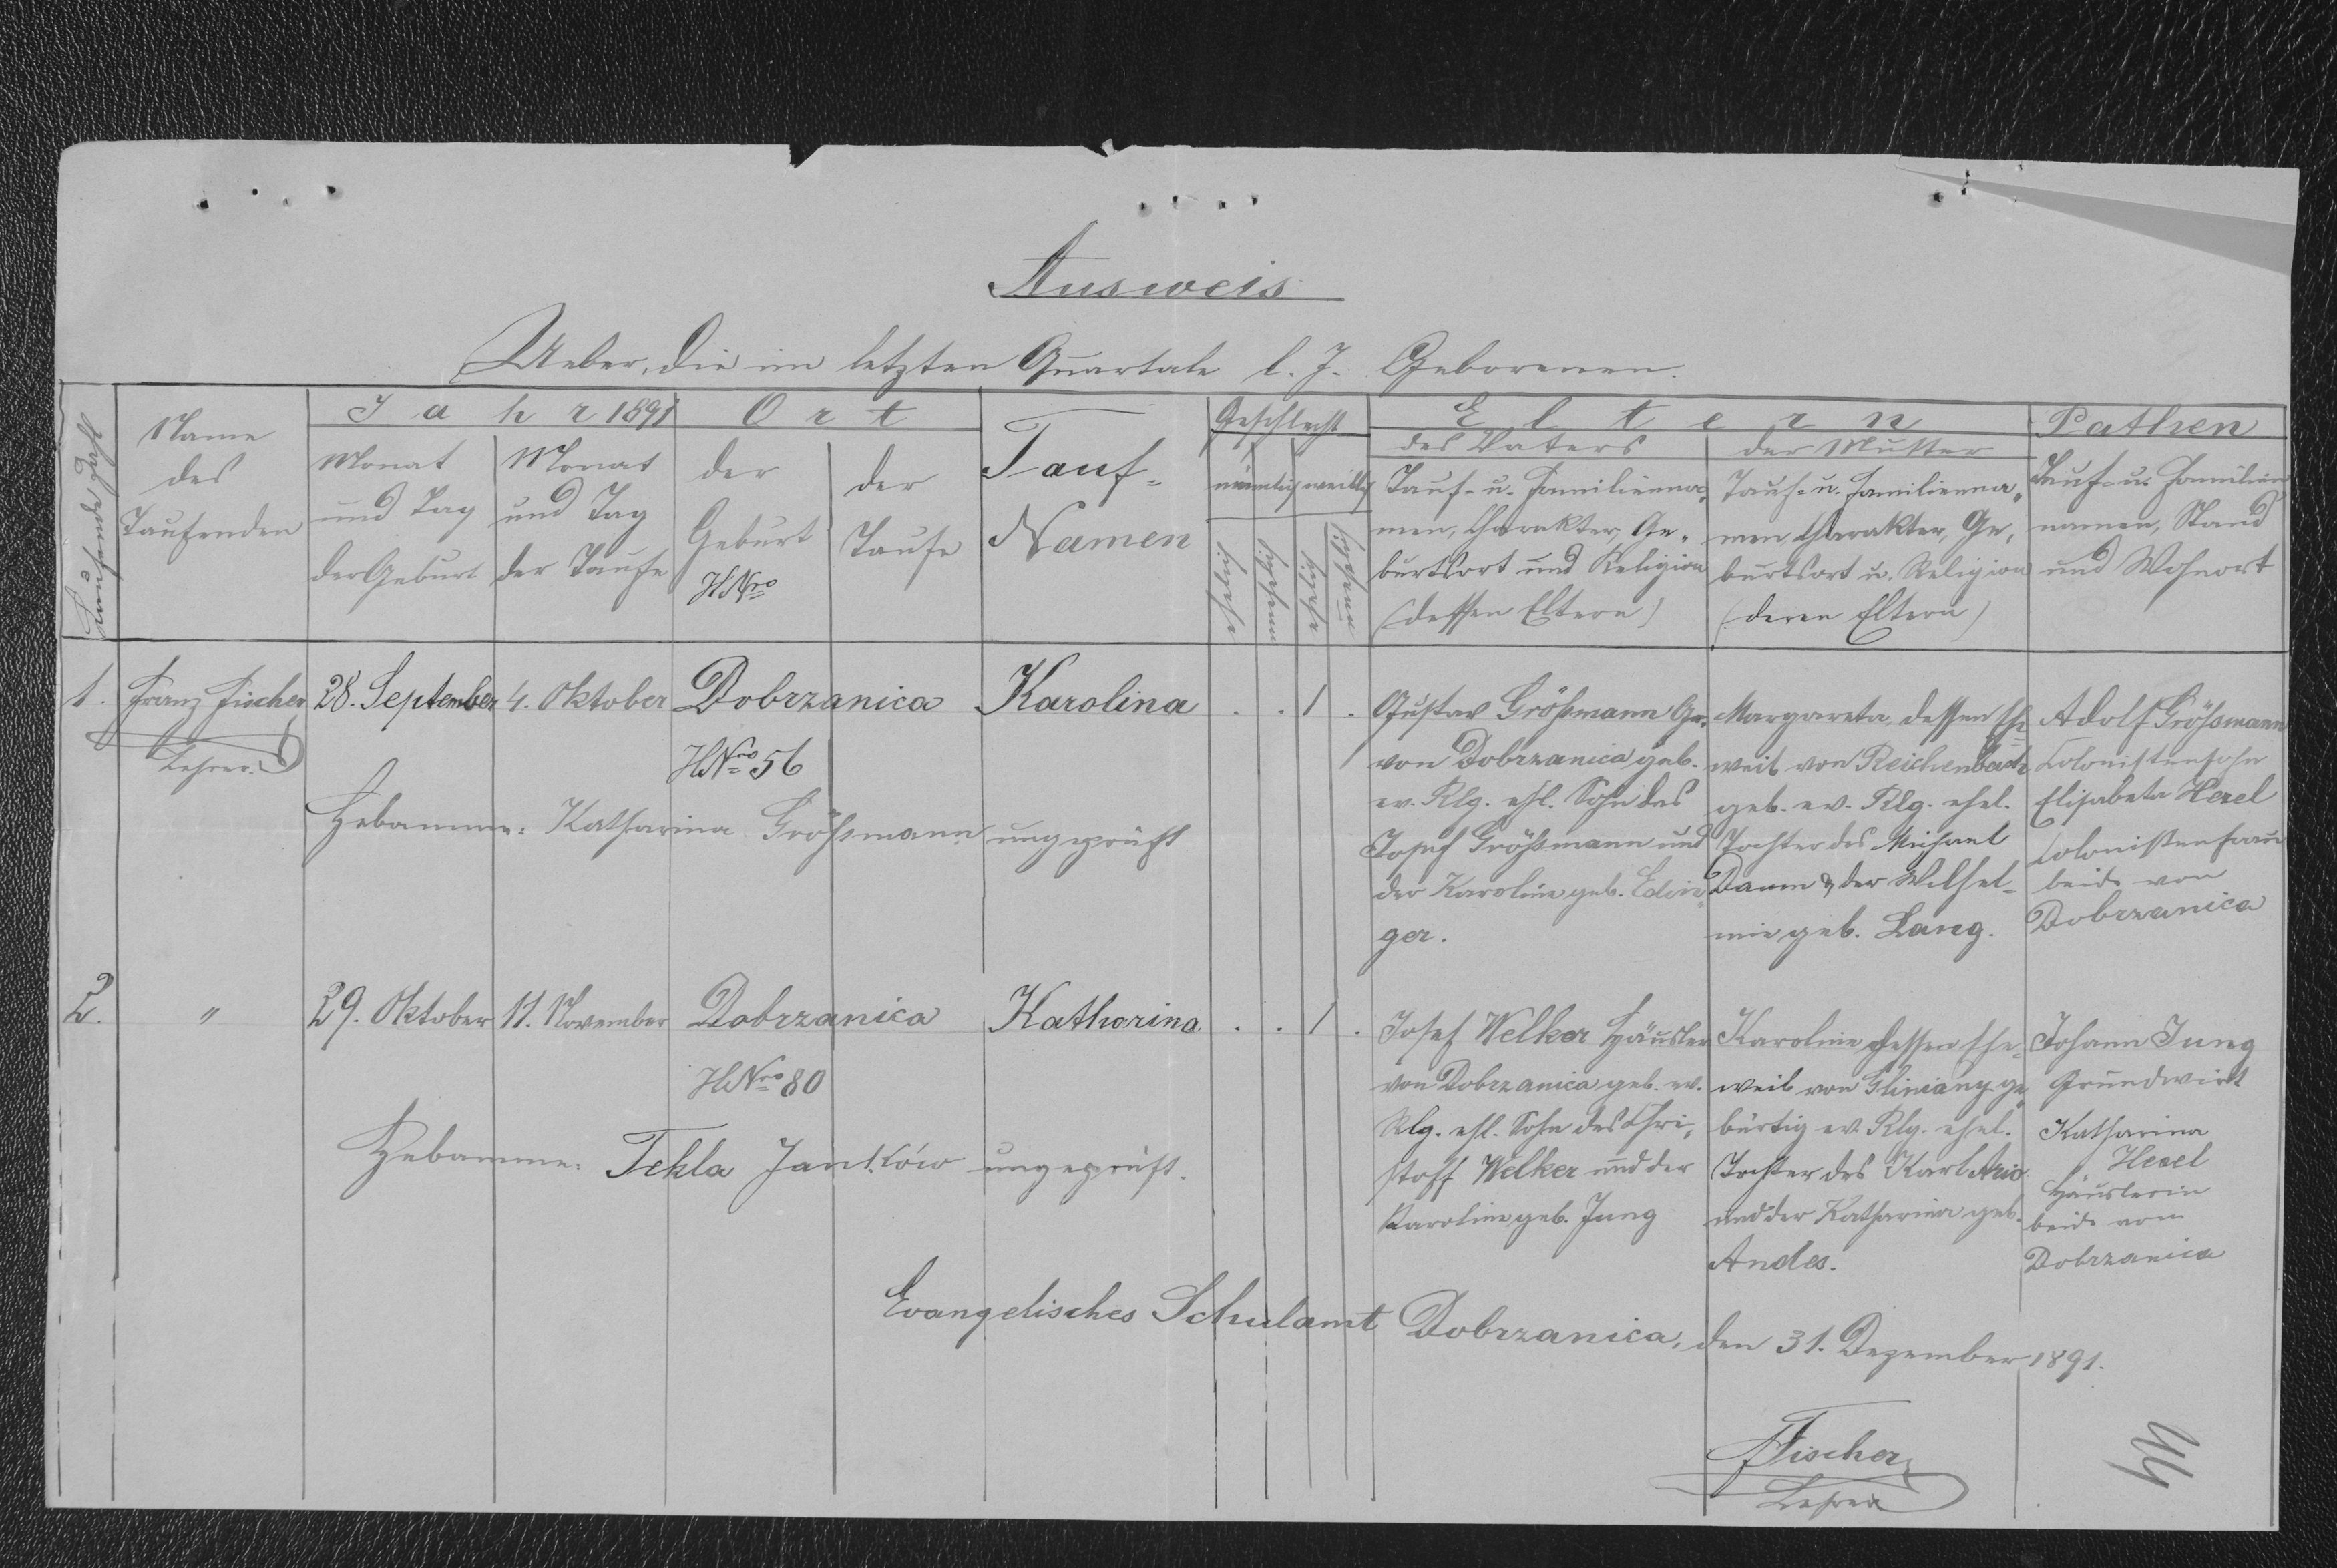 Ausweis
Ueber, die im letzten Quartale l. J. Geborenen.
Laufende Zahl
Name
des
Taufenden
Jahr 1891
Monat
und Tag
der Geburt
Monat
und Tag
der Taufe
Ort
der
Geburt
HNro
der
Taufe
Tauf-
Namen
Geschlecht
männlich
weiblich
ehelich
Eltern
des Vaters
Tauf- u. Familienna-
men, Charakter, Ge-
burtsort und Religion
(dessen Eltern)
der Mutter
Tauf- u. Familienna-
men Charakter, Ge-
burtsort u. Religion
(deren Eltern)
Pathen
Tauf- u. Familien
namen, Stand
und Wohnort
1.
Franz Fischer
Lehrer.
28. September
4. Oktober
Dobrzanica
HNro 56
Karolina
. . 1 .
Gustav Größmann
von Dobrzanica geb.
ev. Rlg. ehl. Sohn des
Josef Größmann und
der Karoline geb. Edin-
ger.
Margareta, dessen Ehe-
weib von Reichenbach
geb. ev. Rlg. ehel.
Tochter des Michael
Daum & der Wilhel-
mine geb. Lang.
Adolf Größmann
Colonistensohn
Elisabeta Hexel
Colonistenfrau
beide von
Dobrzanica
Hebamme: Katharina Größmann ungeprüft
2.
"
29. Oktober
11. November
Dobrzanica
HNro 80
Katharina
. . 1 .
Josef Welker Häusler
von Dobrzanica geb. ev.
Rlg. ehl. Sohn des Chri-
stoff Welker und der
Karoline geb. Jung
Karoline dessen Ehe-
weib von Gliniany ge-
bürtig ev. Rlg. ehel.
Tochter des Karl
und der Katharina geb.
Andes.
Johann Jung
Grundwirt
Katharina
Hexel
Häuslerin
beide von
Dobrzanica
Hebamme: Tekla Janków ungeprüft.
Evangelisches Schulamt Dobrzanica, den 31. Dezember 1891.
Fischer
Lehrer